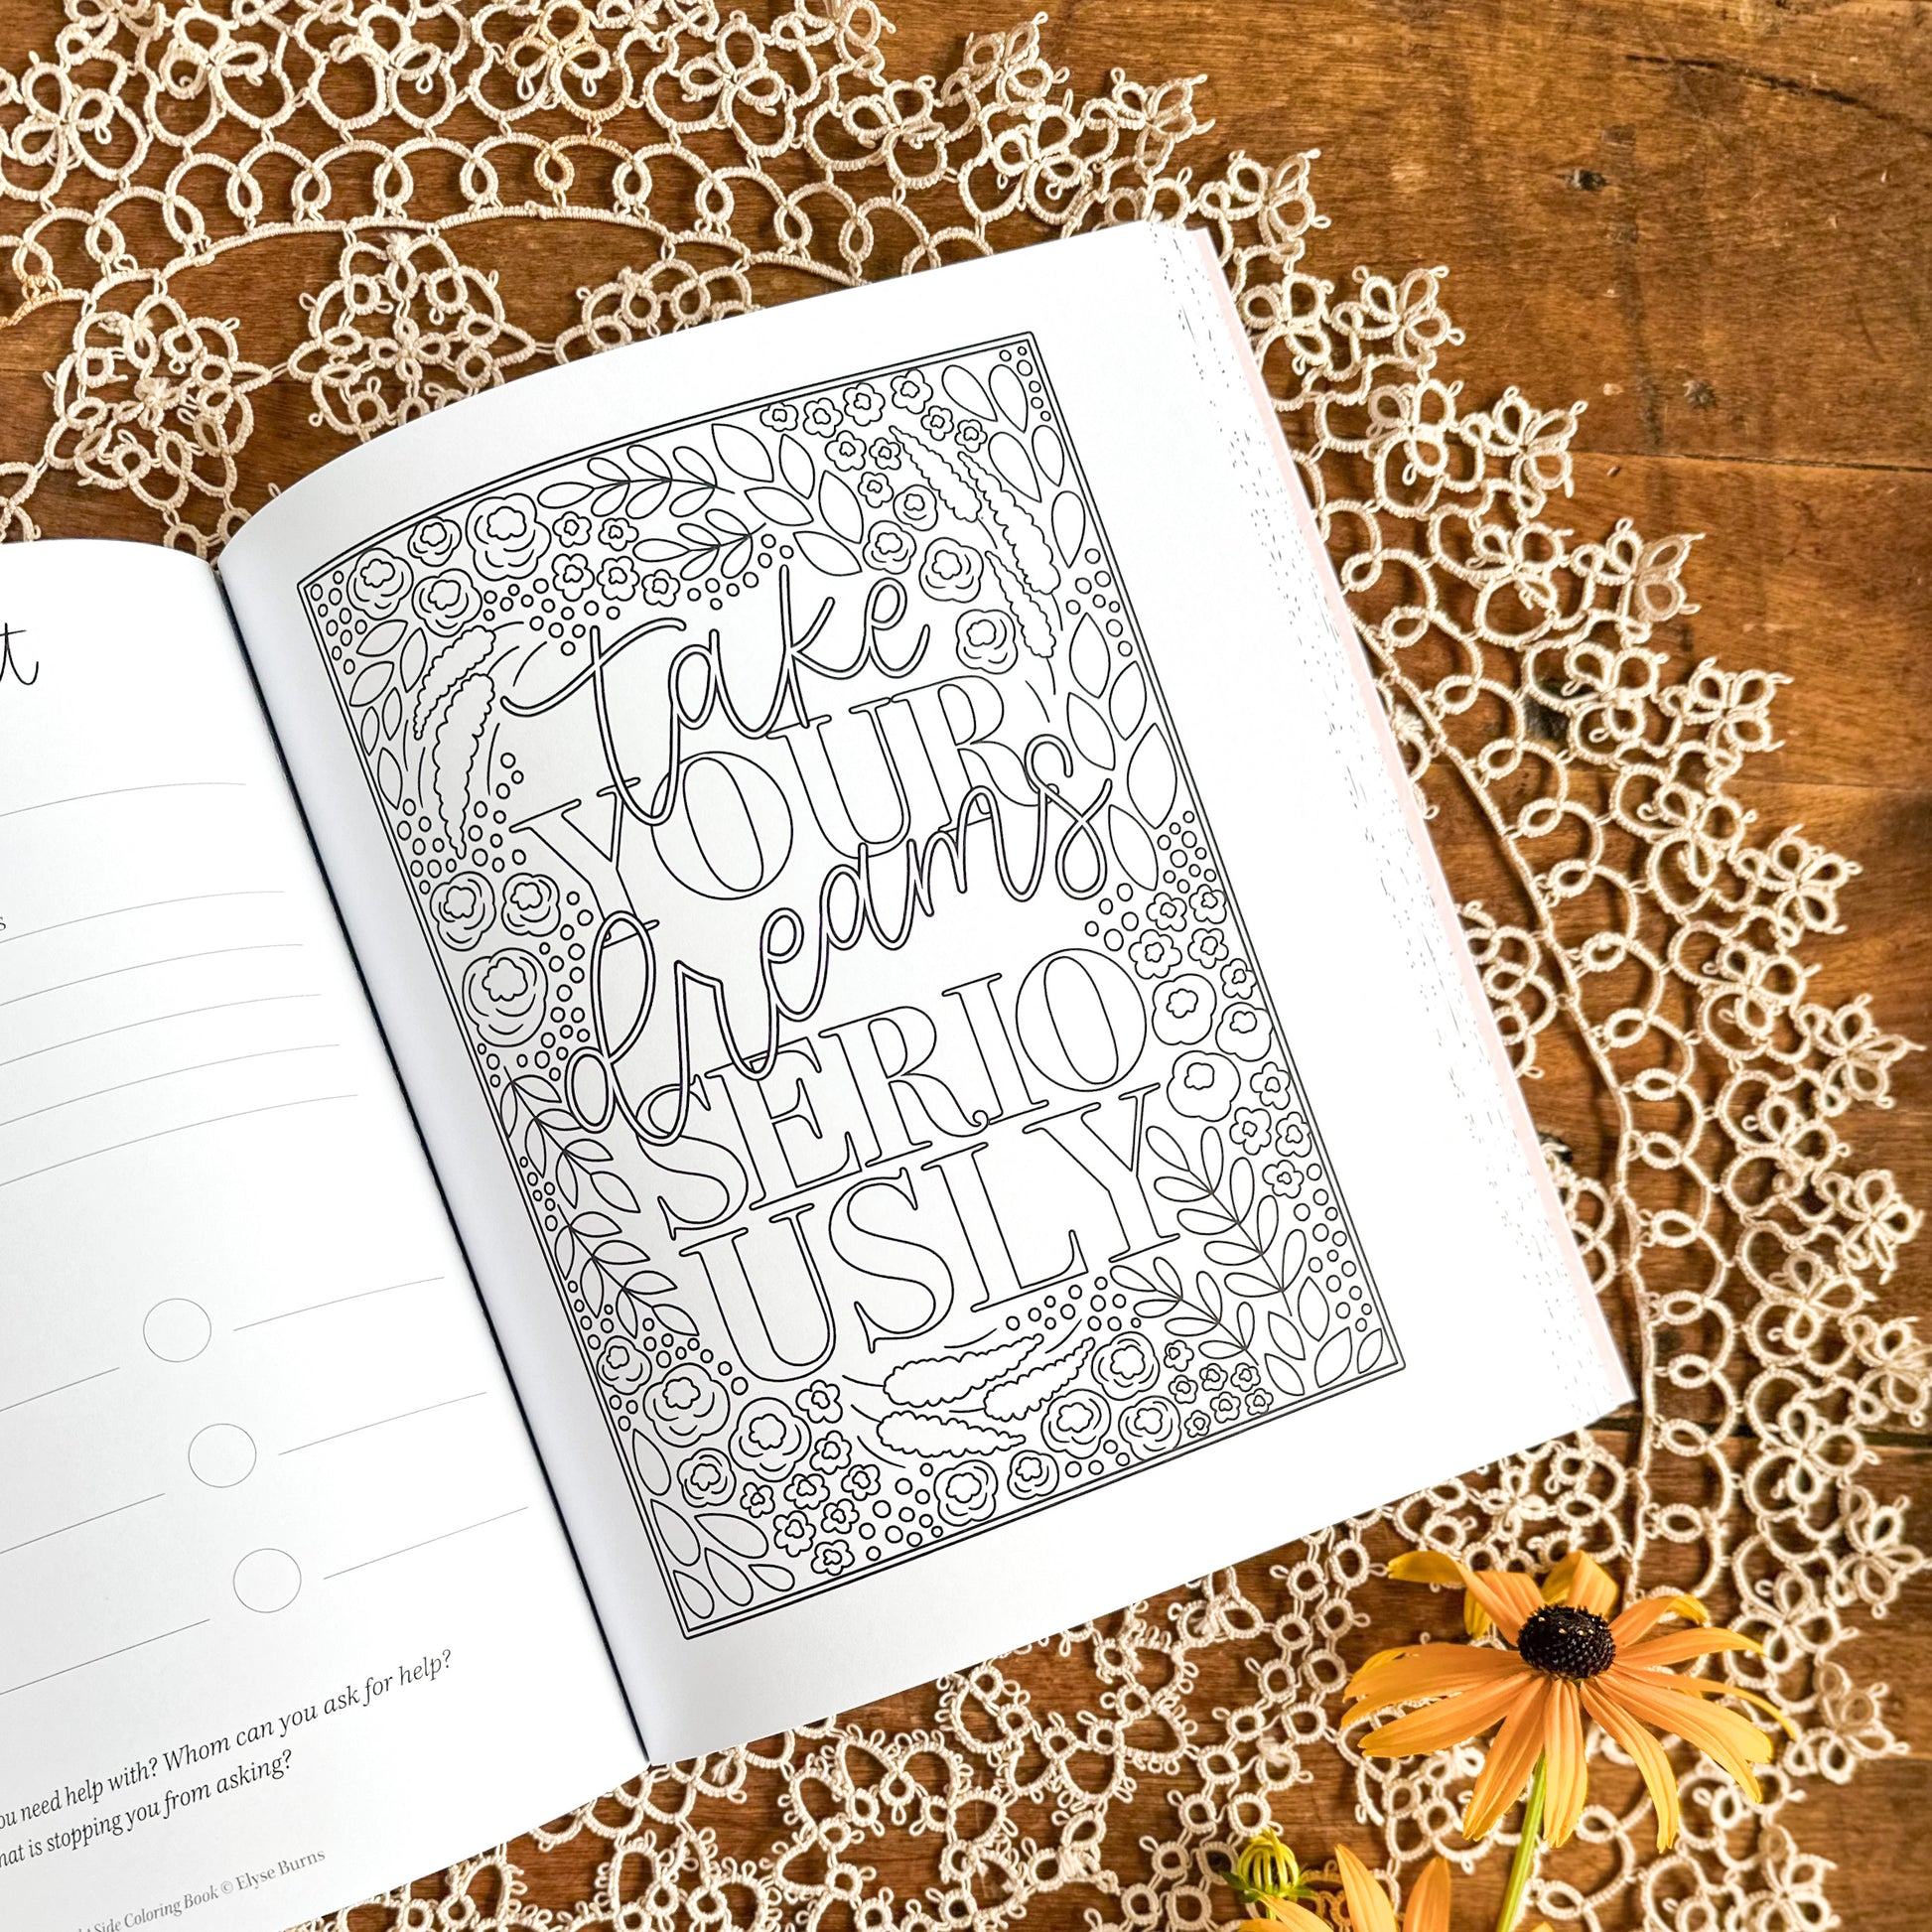 need help with? Whom can you ask for help?
is stopping you from asking?
Side Coloring Book © Elyse Burns
take
YOUR
dreams
SERIO
USLY